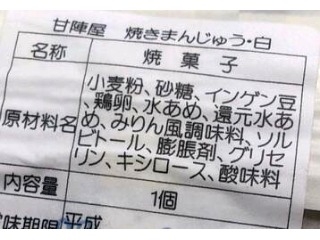 甘陣屋 焼きまんじゅう・白
名称 焼菓子
原材料名 小麦粉、砂糖、インゲン豆
、鶏卵、水あめ、還元水あ
め、みりん風調味料、ソル
ビトール、膨脹剤、グリセ
リン、キシロース、酸味料
内容量 1個
味期限 平成